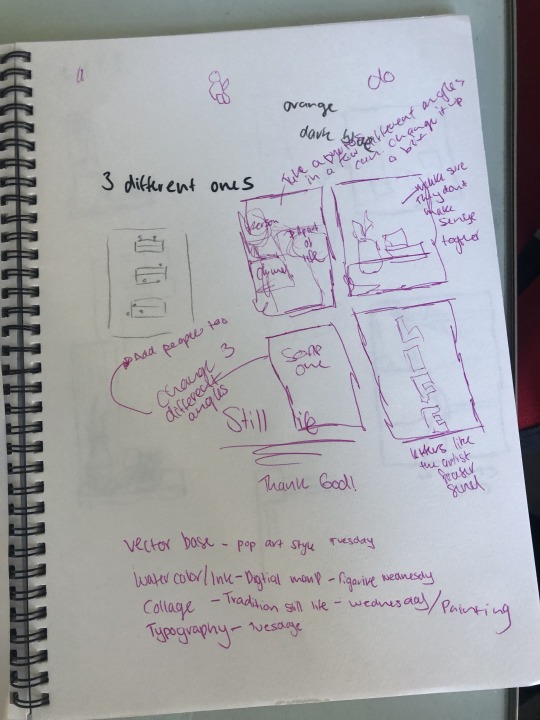 orange
dark blue
Take a photo different angles
in a few can. Change it up
a bit
3 different ones
make sure
they dont
make
sense
togher
person
part of
life
Add people too
Change 3
different
angles
Some
one
Still life
LIFE
letters like
the artist
Thank God!
vector base - pop art style Tuesday
Watercolor/Ink - Digtial manP - figarive wednesdy
Collage - Tradition still life - wednesday/Painting
Typography - Tuesage